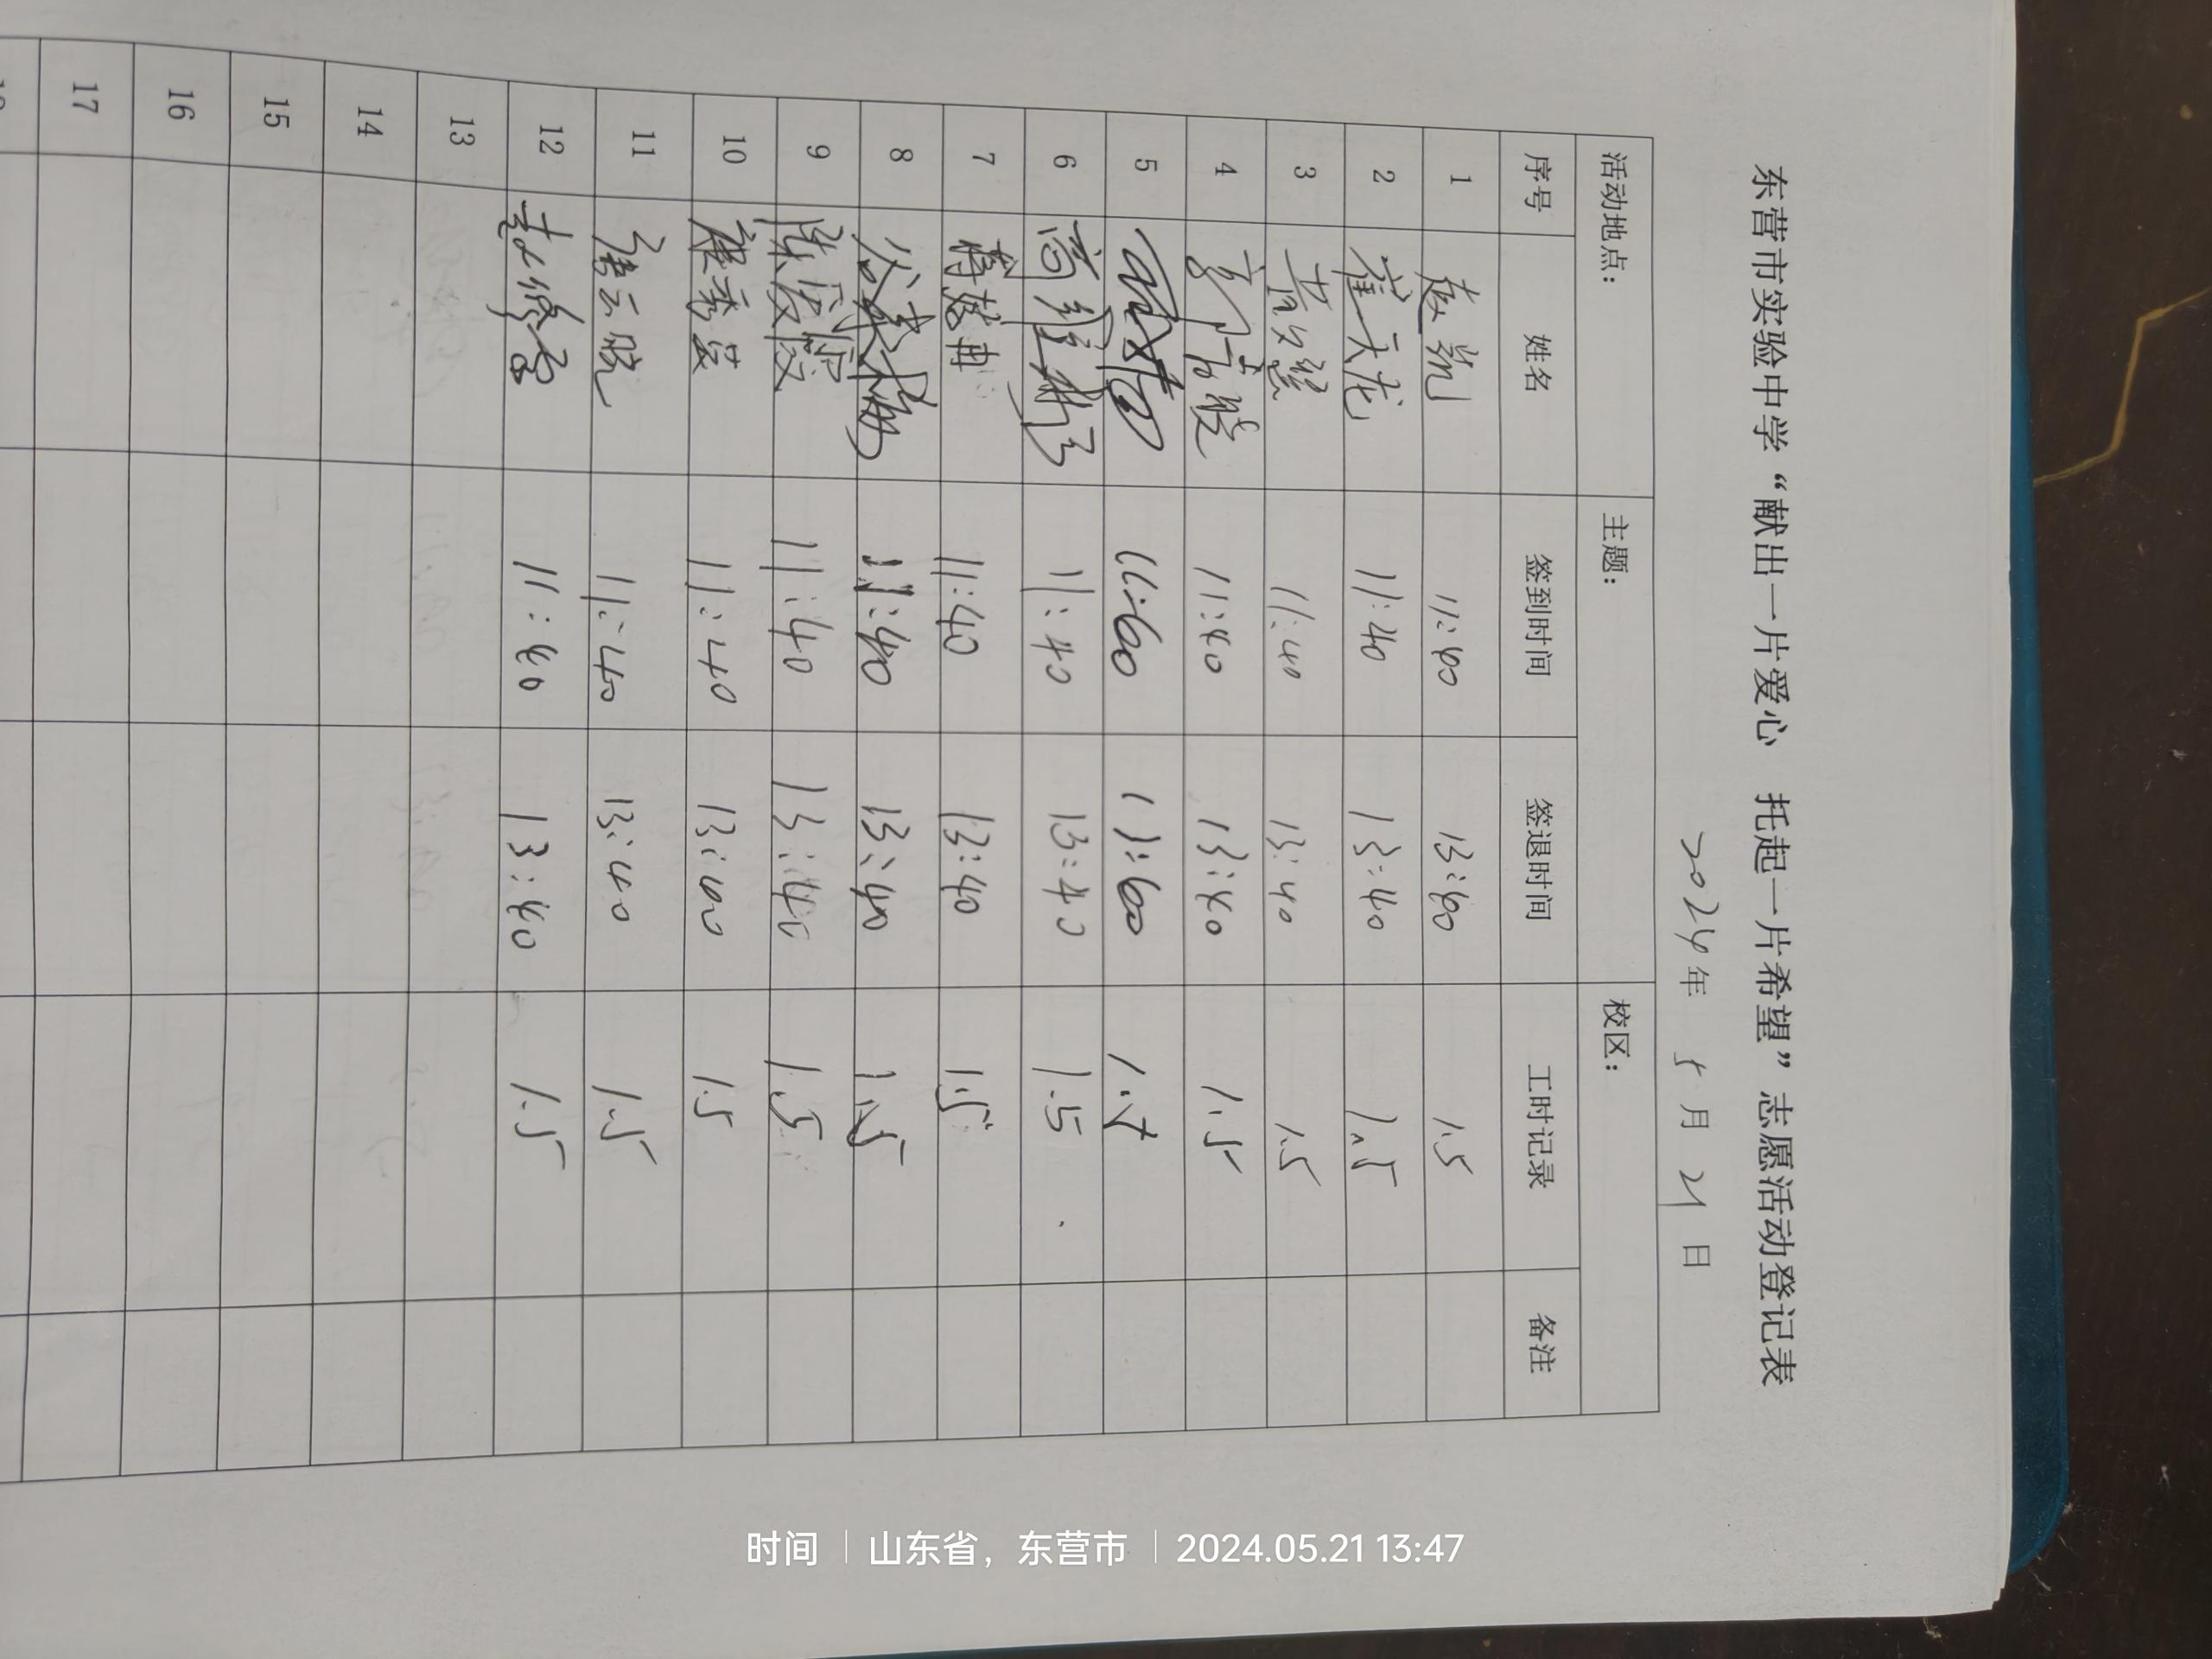 东营市实验中学“献出一片爱心 托起一片希望”志愿活动登记表
2024年 5月 21日
活动地点: 主题: 校区:
序号 姓名 签到时间 签退时间 工时记录 备注
1 赵凯 11:40 13:40 1.5
2 崔天龙 11:40 13:40 1.5
3 11:40 13:40 1.5
4 11:40 13:40 1.5
5 11:40 13:40 1.5
6 11:40 13:40 1.5
7 11:40 13:40 1.5
8 11:40 13:40 1.5
9 11:40 13:40 1.5
10 11:40 13:40 1.5
11 11:40 13:40 1.5
12 11:40 13:40 1.5
13
14
15
16
17
时间 山东省，东营市 2024.05.21 13:47